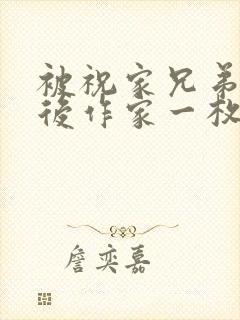 被祝家兄弟
後作家一枚
詹奕嘉